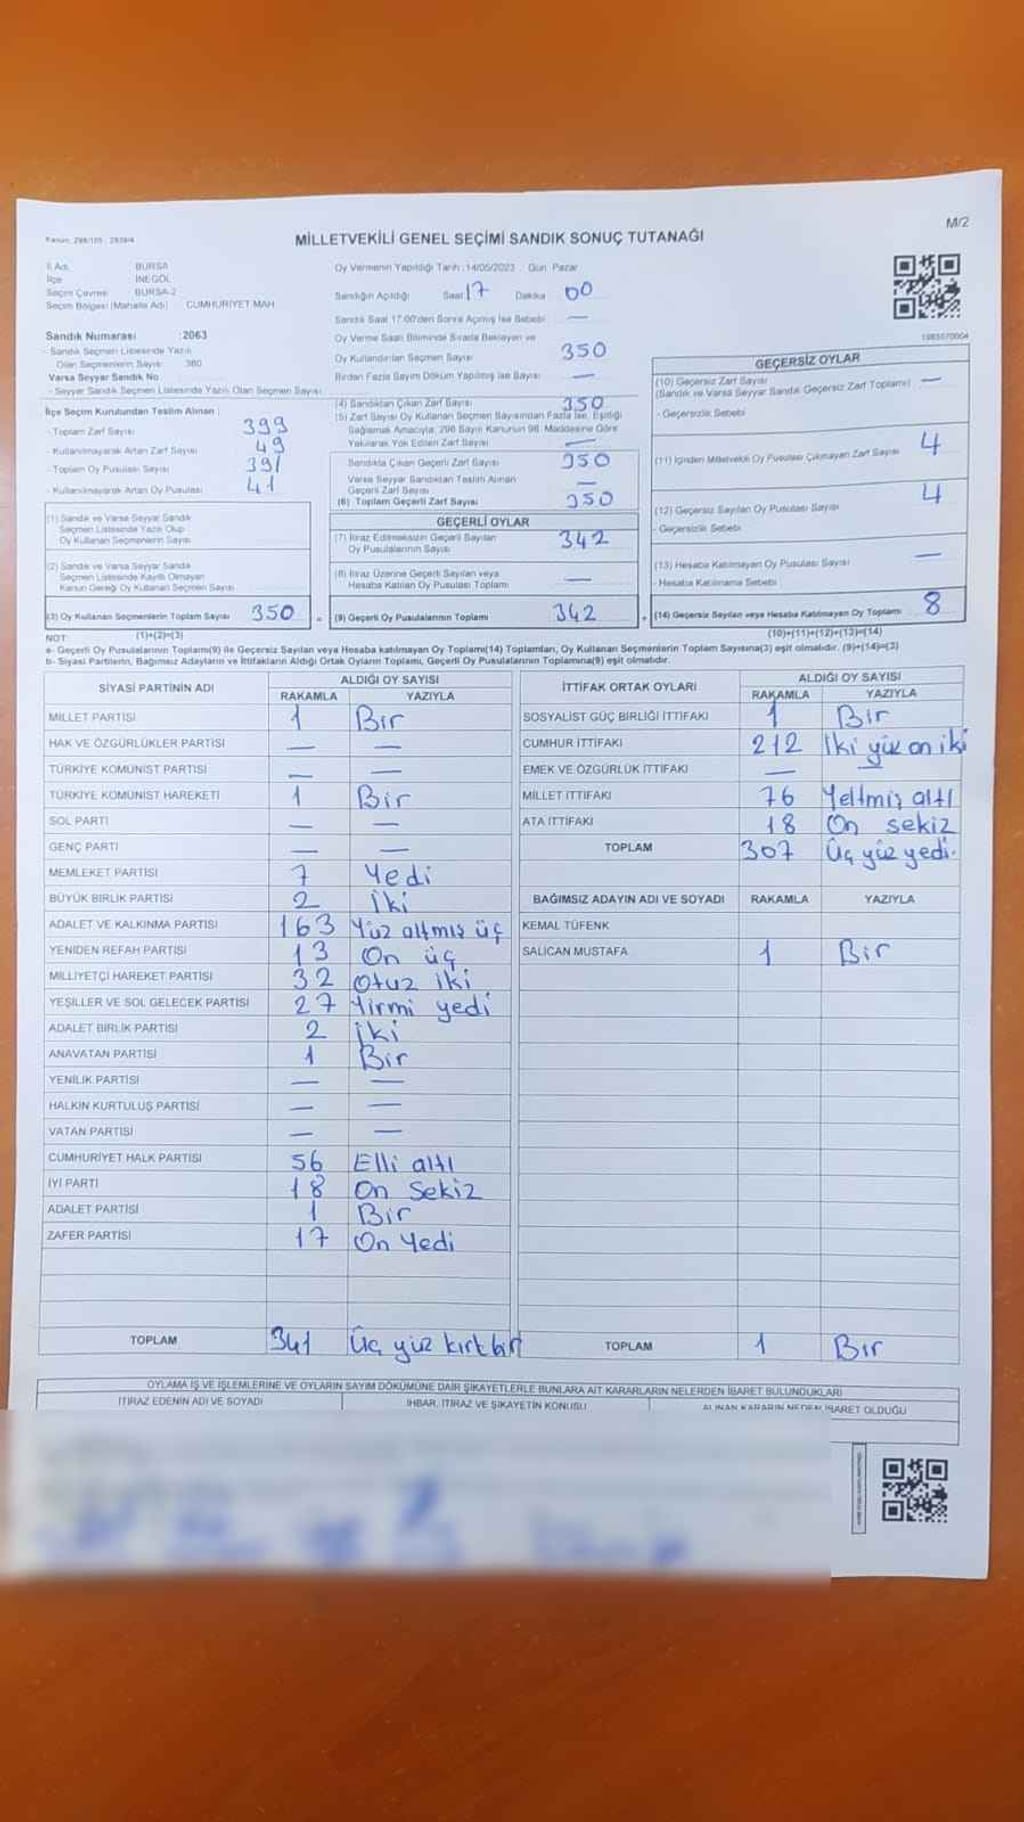 Kanun: 298/105 : 2839/4
M/2
MİLLETVEKİLİ GENEL SEÇİMİ SANDIK SONUÇ TUTANAĞI
İl Adı BURSA
İlçe İNEGÖL
Seçim Çevresi BURSA-2
Seçim Bölgesi (Mahalle Adı) CUMHURİYET MAH
Sandık Numarası :2063
- Sandık Seçmen Listesinde Yazılı
Olan Seçmenlerin Sayısı 380
Varsa Seyyar Sandık No
- Seyyar Sandık Seçmen Listesinde Yazılı Olan Seçmen Sayısı
İlçe Seçim Kurulundan Teslim Alınan :
- Toplam Zarf Sayısı 399
- Kullanılmayarak Artan Zarf Sayısı 49
- Toplam Oy Pusulası Sayısı 391
- Kullanılmayarak Artan Oy Pusulası 41
(1) Sandık ve Varsa Seyyar Sandık
Seçmen Listesinde Yazılı Olup
Oy Kullanan Seçmenlerin Sayısı
(2) Sandık ve Varsa Seyyar Sandık
Seçmen Listesinde Kayıtlı Olmayan
Kanun Gereği Oy Kullanan Seçmen Sayısı
(3) Oy Kullanan Seçmenlerin Toplam Sayısı 350
(1)+(2)=(3)
Oy Vermenin Yapıldığı Tarih :14/05/2023 Gün Pazar
Sandığın Açıldığı Saat 17 Dakika 00
Sandık Saat 17:00'den Sonra Açılmış İse Sebebi —
Oy Verme Saati Bitiminde Sırada Bekleyen ve
Oy Kullandırılan Seçmen Sayısı 350
Birden Fazla Sayım Döküm Yapılmış İse Sayısı —
(4) Sandıktan Çıkan Zarf Sayısı 350
(5) Zarf Sayısı Oy Kullanan Seçmen Sayısından Fazla İse, Eşitliği
Sağlamak Amacıyla, 298 Sayılı Kanunun 98. Maddesine Göre
Yakılarak Yok Edilen Zarf Sayısı —
Sandıkta Çıkan Geçerli Zarf Sayısı 350
Varsa Seyyar Sandıktan Teslim Alınan
Geçerli Zarf Sayısı —
(6) Toplam Geçerli Zarf Sayısı 350
GEÇERLİ OYLAR
(7) İtiraz Edilmeksizin Geçerli Sayılan
Oy Pusulalarının Sayısı 342
(8) İtiraz Üzerine Geçerli Sayılan veya
Hesaba Katılan Oy Pusulası Toplamı —
= (9) Geçerli Oy Pusulalarının Toplamı 342
1985570004
GEÇERSİZ OYLAR
(10) Geçersiz Zarf Sayısı
(Sandık ve Varsa Seyyar Sandık Geçersiz Zarf Toplamı) —
- Geçersizlik Sebebi
(11) İçinden Milletvekili Oy Pusulası Çıkmayan Zarf Sayısı 4
(12) Geçersiz Sayılan Oy Pusulası Sayısı 4
- Geçersizlik Sebebi
(13) Hesaba Katılmayan Oy Pusulası Sayısı —
- Hesaba Katılmama Sebebi
+ (14) Geçersiz Sayılan veya Hesaba Katılmayan Oy Toplamı 8
(10)+(11)+(12)+(13)=(14)
NOT:
a- Geçerli Oy Pusulalarının Toplamı(9) ile Geçersiz Sayılan veya Hesaba katılmayan Oy Toplamı(14) Toplamları, Oy Kullanan Seçmenlerin Toplam Sayısına(3) eşit olmalıdır. (9)+(14)=(3)
b- Siyasi Partilerin, Bağımsız Adayların ve İttifakların Aldığı Ortak Oyların Toplamı, Geçerli Oy Pusulalarının Toplamına(9) eşit olmalıdır.
SİYASİ PARTİNİN ADI ALDIĞI OY SAYISI
RAKAMLA YAZIYLA
MİLLET PARTİSİ 1 Bir
HAK VE ÖZGÜRLÜKLER PARTİSİ — —
TÜRKİYE KOMÜNİST PARTİSİ — —
TÜRKİYE KOMÜNİST HAREKETİ 1 Bir
SOL PARTİ — —
GENÇ PARTİ — —
MEMLEKET PARTİSİ 7 Yedi
BÜYÜK BİRLİK PARTİSİ 2 İki
ADALET VE KALKINMA PARTİSİ 163 Yüz altmış üç
YENİDEN REFAH PARTİSİ 13 On üç
MİLLİYETÇİ HAREKET PARTİSİ 32 Otuz iki
YEŞİLLER VE SOL GELECEK PARTİSİ 27 Yirmi yedi
ADALET BİRLİK PARTİSİ 2 İki
ANAVATAN PARTİSİ 1 Bir
YENİLİK PARTİSİ — —
HALKIN KURTULUŞ PARTİSİ — —
VATAN PARTİSİ — —
CUMHURİYET HALK PARTİSİ 56 Elli altı
İYİ PARTİ 18 On Sekiz
ADALET PARTİSİ 1 Bir
ZAFER PARTİSİ 17 On Yedi
TOPLAM 341 Üç yüz kırk bir
İTTİFAK ORTAK OYLARI ALDIĞI OY SAYISI
RAKAMLA YAZIYLA
SOSYALİST GÜÇ BİRLİĞİ İTTİFAKI 1 Bir
CUMHUR İTTİFAKI 212 İki yüz on iki
EMEK VE ÖZGÜRLÜK İTTİFAKI — —
MİLLET İTTİFAKI 76 Yetmiş altı
ATA İTTİFAKI 18 On sekiz
TOPLAM 307 Üç yüz yedi.
BAĞIMSIZ ADAYIN ADI VE SOYADI RAKAMLA YAZIYLA
KEMAL TÜFENK
SALİCAN MUSTAFA 1 Bir
TOPLAM 1 Bir
OYLAMA İŞ VE İŞLEMLERİNE VE OYLARIN SAYIM DÖKÜMÜNE DAİR ŞİKAYETLERLE BUNLARA AİT KARARLARIN NELERDEN İBARET BULUNDUKLARI
İTİRAZ EDENİN ADI VE SOYADI İHBAR, İTİRAZ VE ŞİKAYETİN KONUSU ALINAN KARARIN NEDEN İBARET OLDUĞU